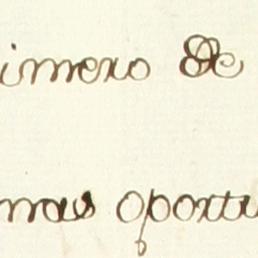 imero de
mas oportu